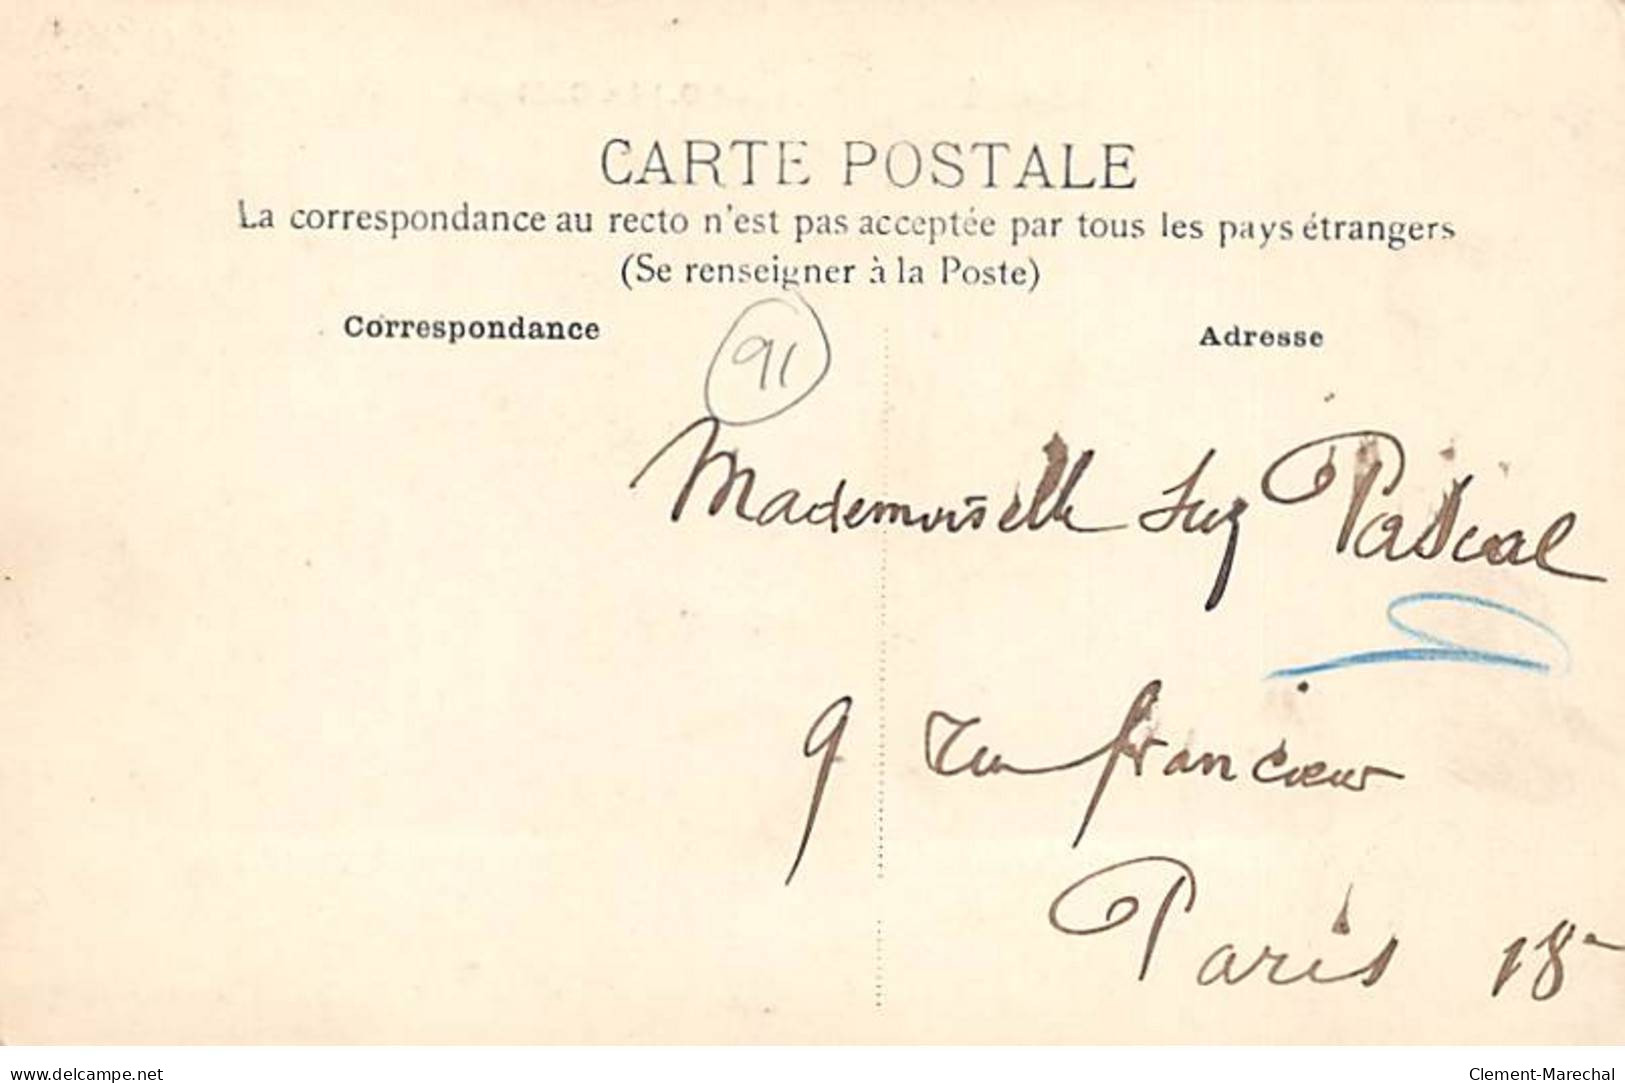 CARTE POSTALE
La correspondance au recto n'est pas acceptée par tous les pays étrangers
(Se renseigner à la Poste)
Correspondance
Adresse
91
Mademoiselle Suz Pascal
9 rue francoeur
Paris 18
www.delcampe.net
Clement-Marechal